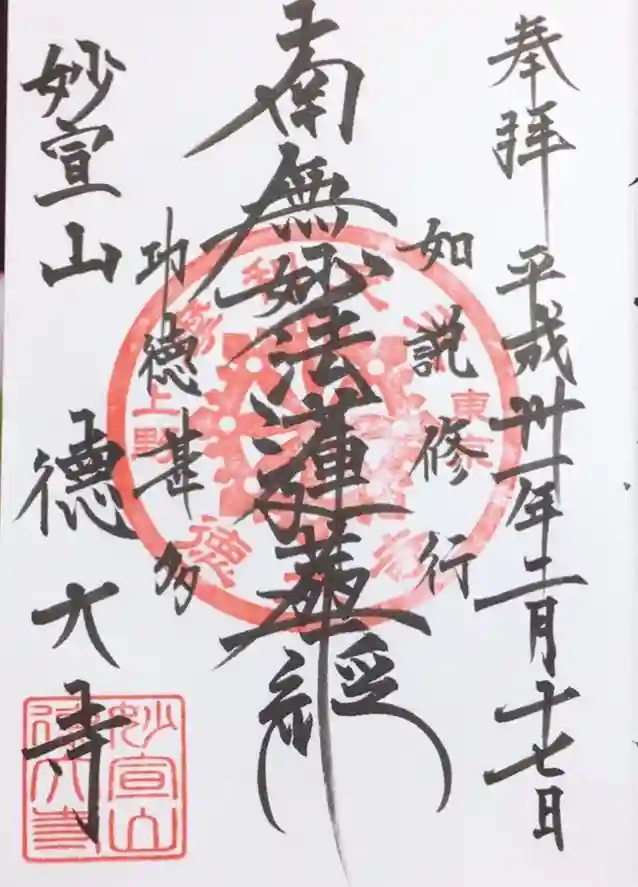 奉拝 平成卅一年二月十七日
如説修行
南無妙法蓮華経
功徳甚多
妙宣山 徳大寺
東京
上野
妙宣山
徳大寺